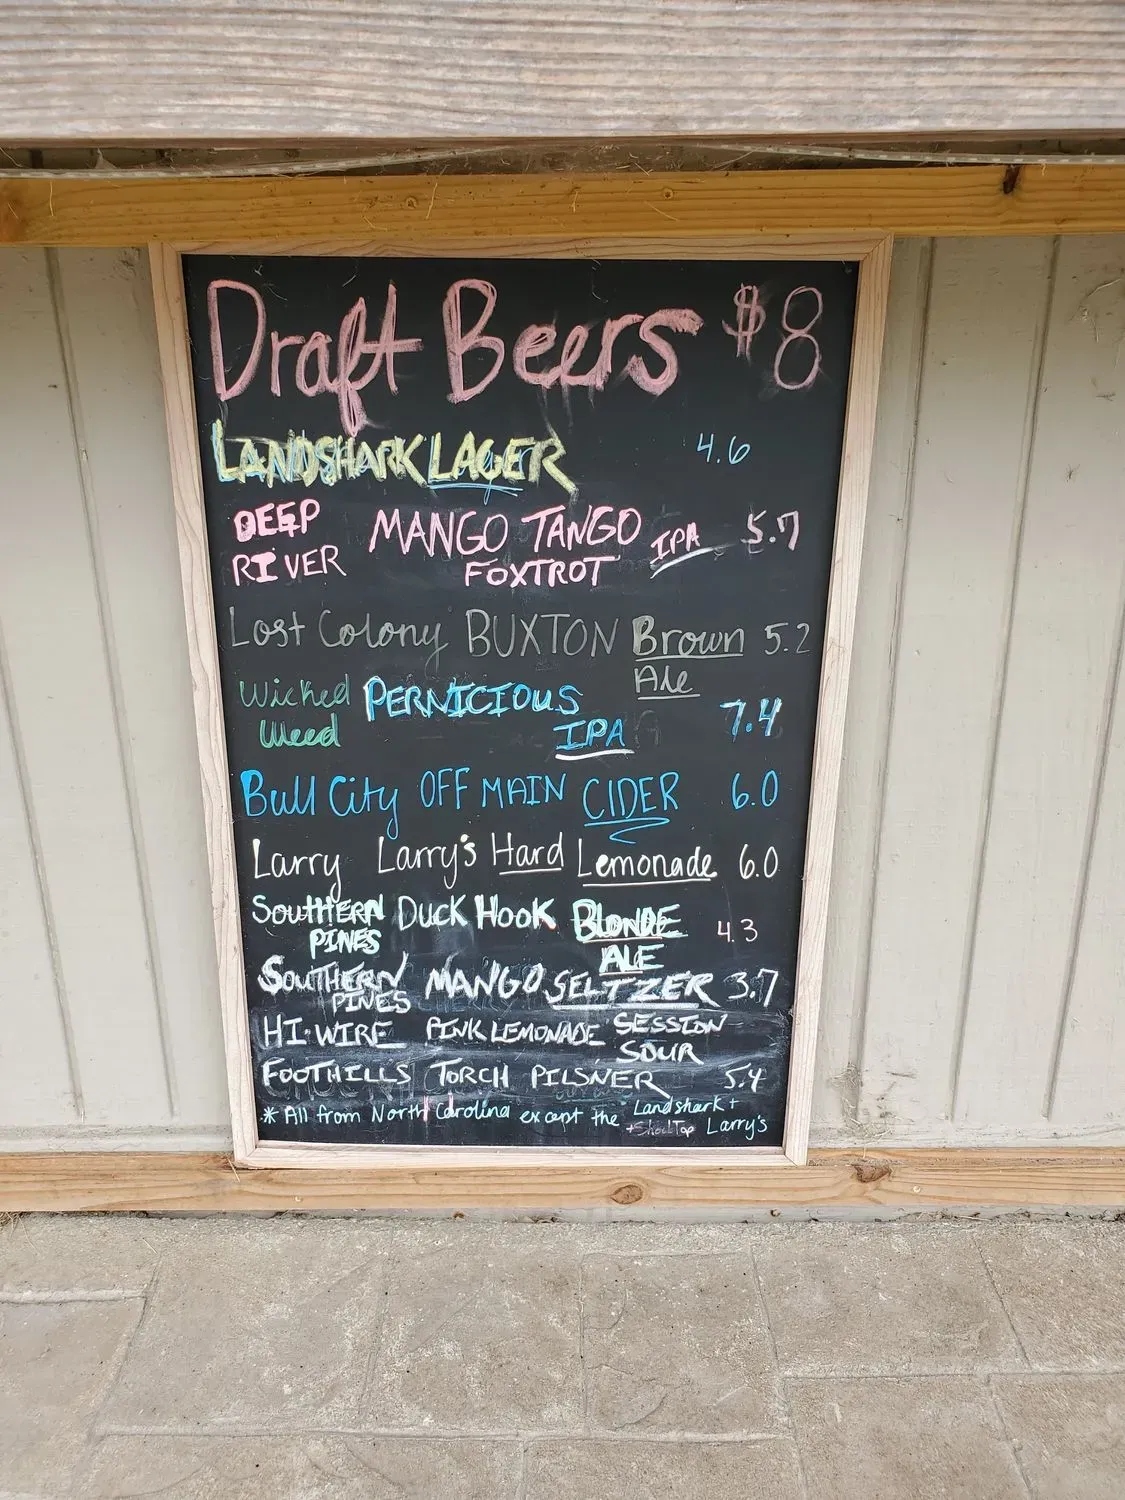 Draft Beers $8
LANDSHARK LAGER 4.6
DEEP RIVER MANGO TANGO FOXTROT IPA 5.7
Lost Colony BUXTON Brown Ale 5.2
Wicked Weed PERNICIOUS IPA 7.4
Bull City OFF MAIN CIDER 6.0
Larry Larry's Hard Lemonade 6.0
SOUTHERN PINES DUCK HOOK BLONDE ALE 4.3
SOUTHERN PINES MANGO SELTZER 3.7
HI-WIRE PINK LEMONADE SESSION SOUR
FOOTHILLS TORCH PILSNER 5.4
* All from North Carolina except the Landshark +
Larry's